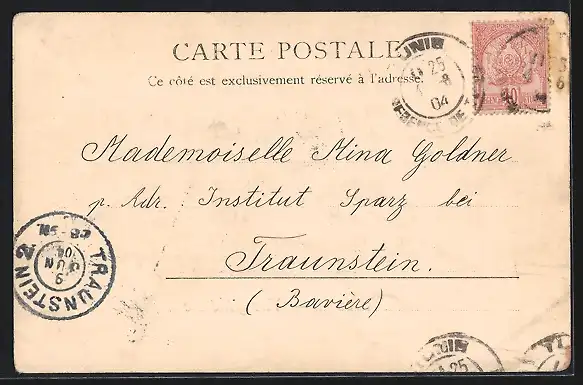 CARTE POSTALE
Ce côté est exclusivement réservé à l'adresse.
UNIS
25
04
10
Mademoiselle Mina Goldner
p. Adr. Institut Sparz bei
Traunstein.
(Bavière)
TRAUNSTEIN 2
9
JUN
04
25